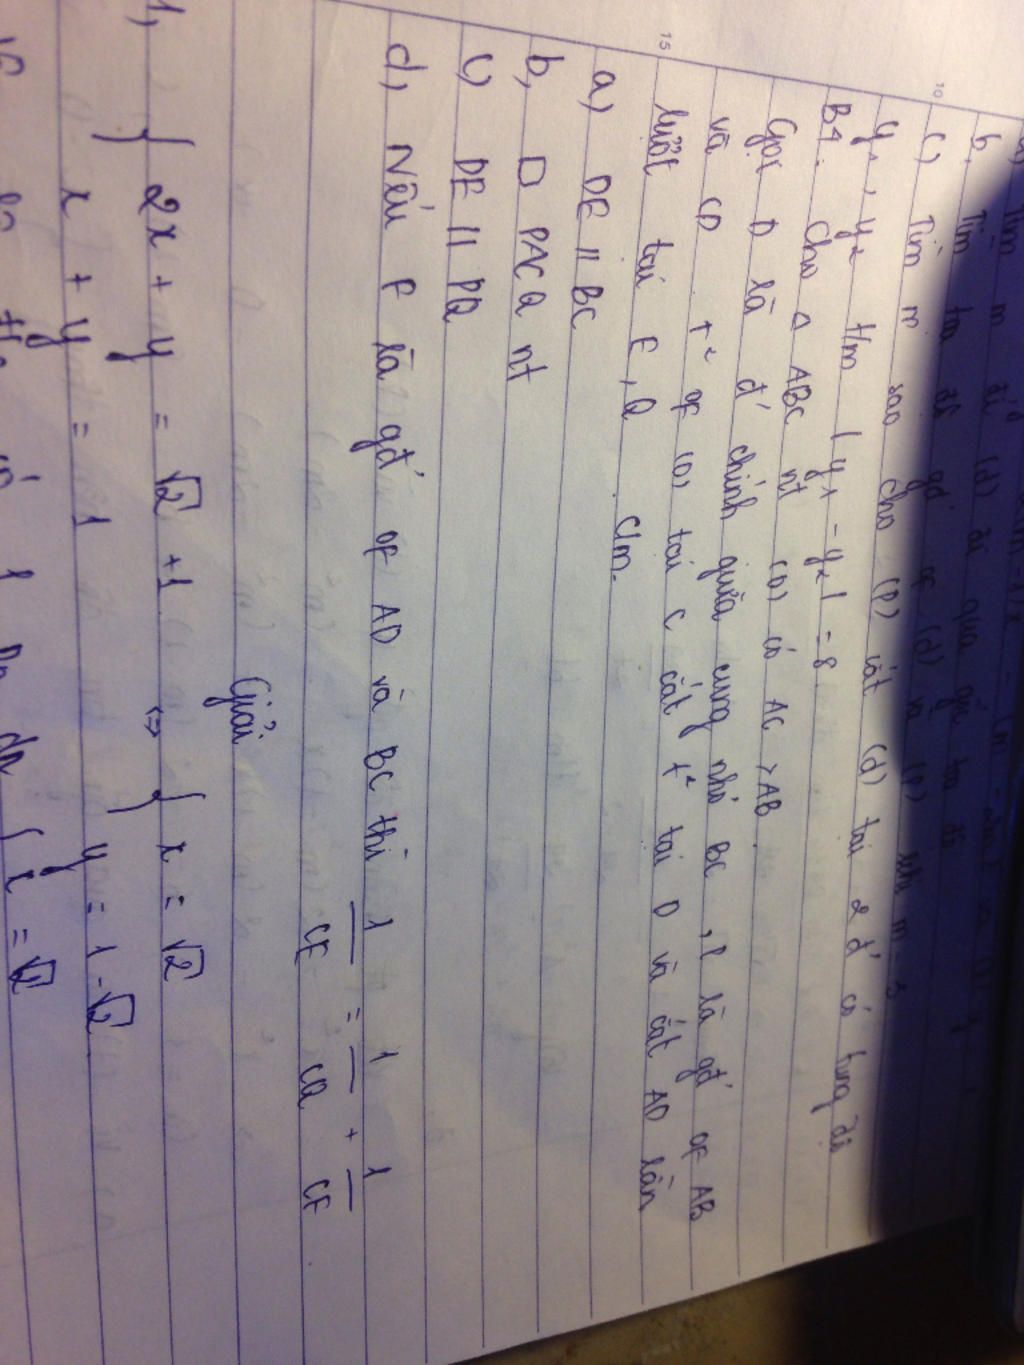 10
15
b, Tìm tọa độ gđ of (d) và (P) khi m = 3
c, Tìm m sao cho (P) cắt (d) tại 2 đ' có tung độ
y₁, y₂ t/m | y₁ - y₂ | = 8
B4: Cho Δ ABC nt (O) có AC > AB
Gọi D là đ' chính giữa cung nhỏ BC, P là gđ' of AB
và CD t² of (O) tại C cắt t² tại D và cắt AD lần
lượt tại E, Q C/m.
a) DE // BC
b, □ PACQ nt
c) DE // PQ
d, Nếu F là gđ' of AD và BC thì 1/CE = 1/CQ + 1/CF
Giải
1, { 2x + y = √2 + 1 ⇔ { x = √2
x + y = 1 y = 1 - √2
{ x = √2